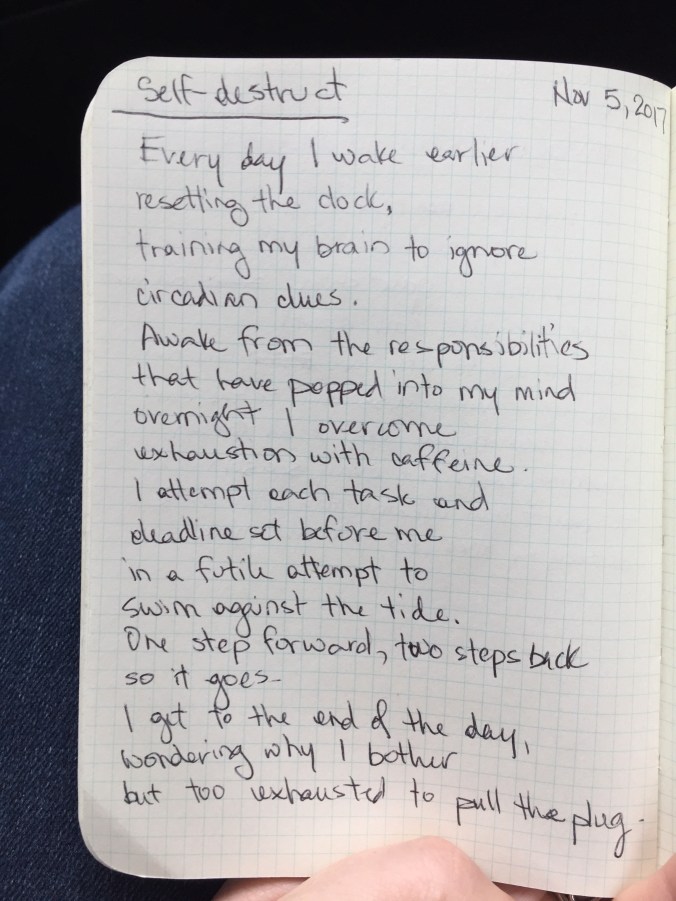 Self-destruct
Nov 5, 2017
Every day I wake earlier
resetting the clock,
training my brain to ignore
circadian clues.
Awake from the responsibilities
that have popped into my mind
overnight I overcome
exhaustion with caffeine.
I attempt each task and
deadline set before me
in a futile attempt to
swim against the tide.
One step forward, two steps back
so it goes-
I get to the end of the day,
wondering why I bother
but too exhausted to pull the plug.